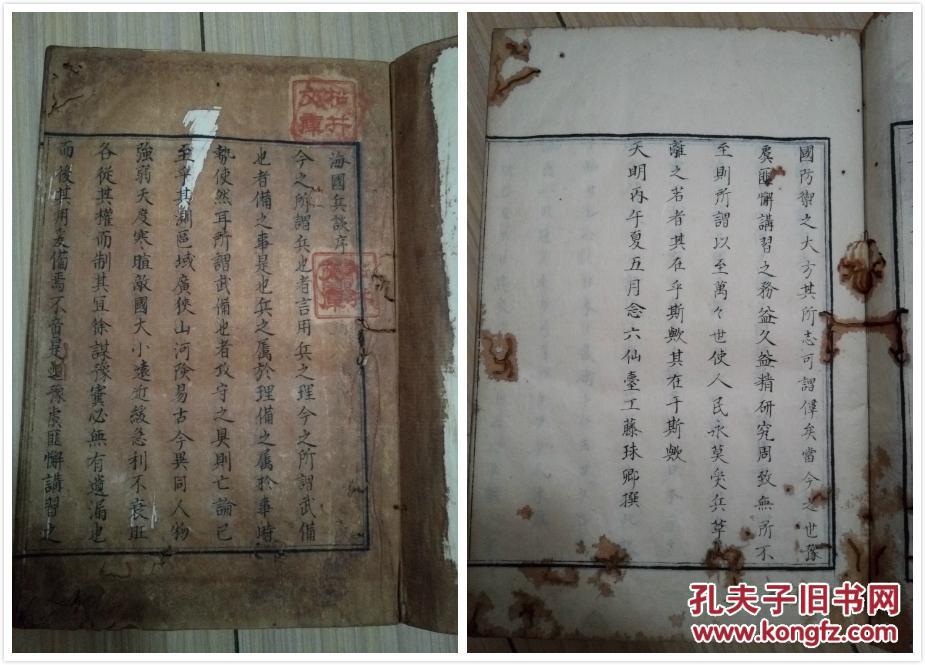 海國兵談序
今之所謂兵也者言用兵之理今之所謂武備
也者備之事是也兵之属於理備之属於事時
勢使然耳所謂武備也者攻守之具則亡論已
至乎其淵區域廣狹山河険易古今異同人物
強弱天度寒暄敵國大小遠近緩急利不衰旺
各從其權而制其宜徐謀豫實必無有遺漏也
而後其用爰備焉不啻是豫虞匪懈講習之
松井文庫
國防禦之大方其所志可謂偉矣當今之世豫
虞匪懈講習之務益久益精研究周致無所不
至則所謂以至萬々世使人民永莫受兵革
離之若者其在乎斯歟其在于斯歟
天明丙午夏五月念六仙臺工藤球卿撰
孔夫子旧书网
www.kongfz.com